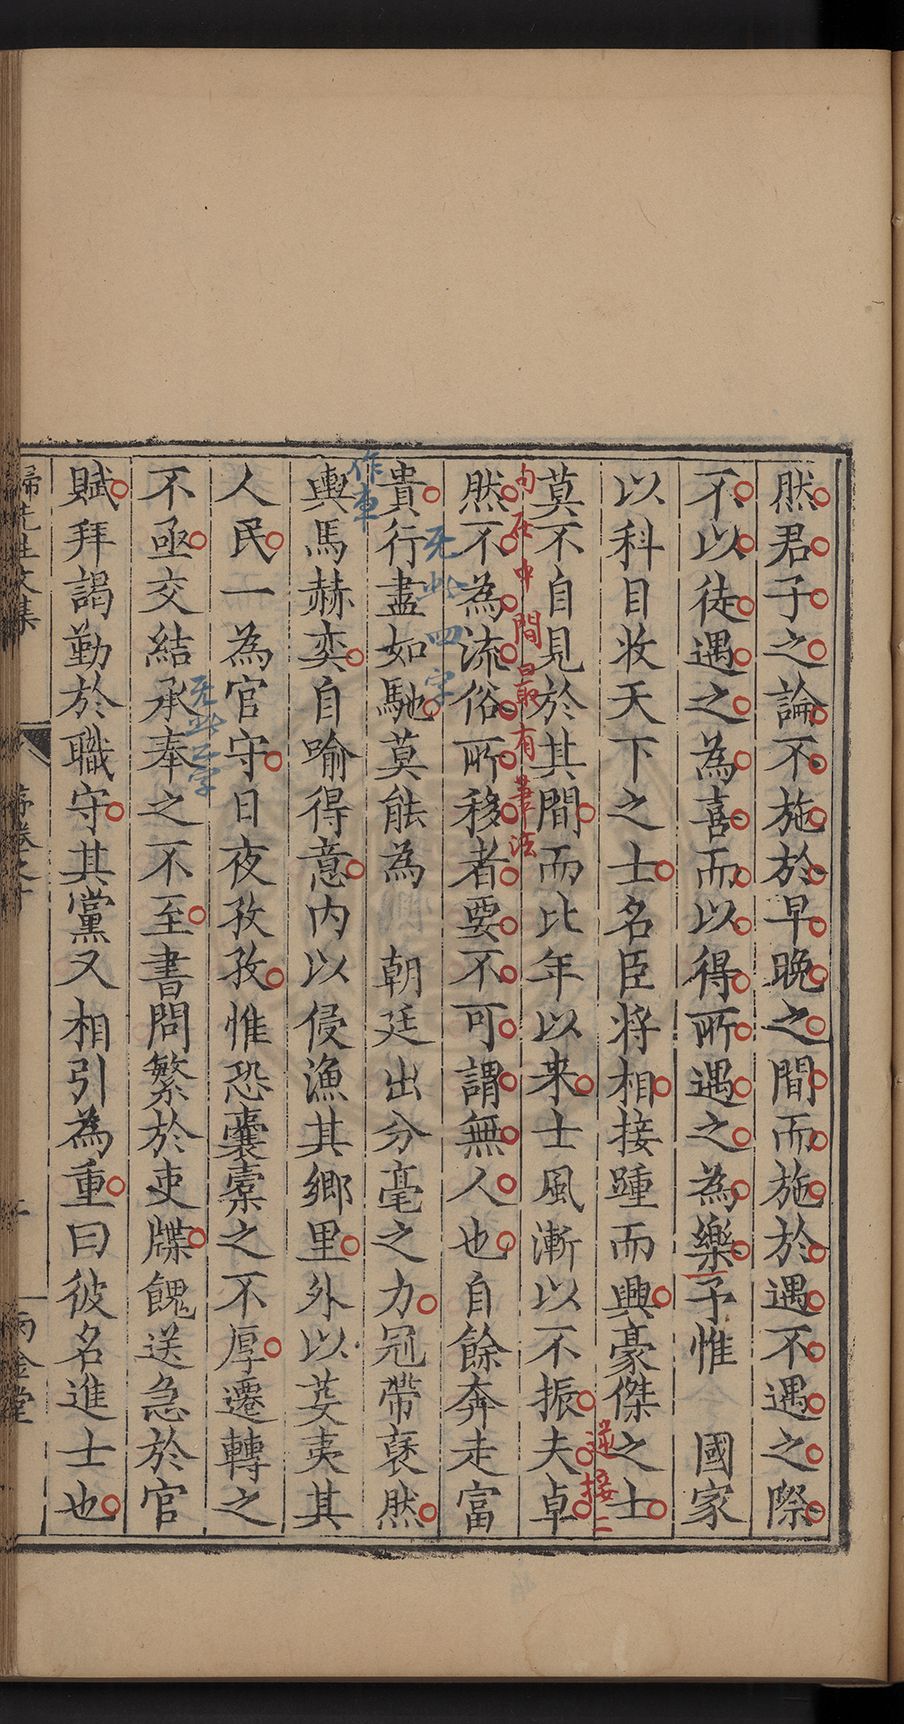 然君子之論不施於早晚之間而施於遇不遇之際
不以徒遇之為喜而以得所遇之為樂予惟　國家
以科目收天下之士名臣將相接踵而興豪傑之士
遙接二
莫不自見於其間而比年以来士風漸以不振夫卓
句在中間最有筆法
然不為流俗所移者要不可謂無人也自餘奔走富
无此四字
貴行盡如馳莫能為　朝廷出分毫之力冠帶裒然
作車
輿馬赫奕自喻得意内以侵漁其鄉里外以芟夷其
人民一為官守日夜孜孜惟恐囊橐之不厚遷轉之
无此至字
不亟交結承奉之不至書問繁於吏牒餽送急於官
賦拜謁勤於職守其黨又相引為重曰彼名進士也
歸先生文集　序卷之十　兩金堂